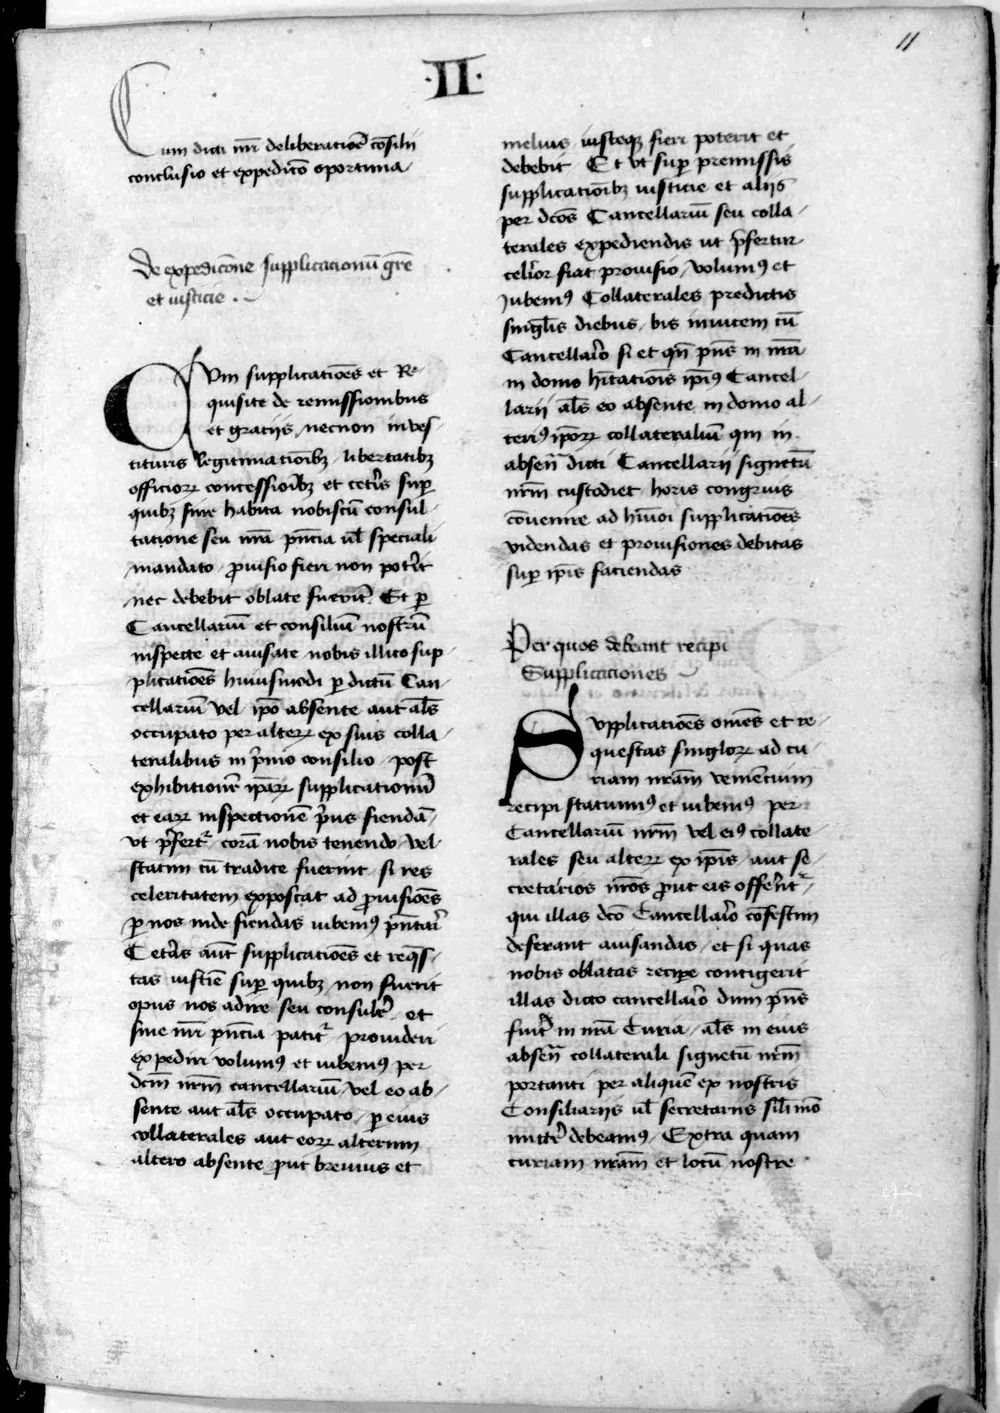 11
·II·
Cum dicti nr̄i deliberatiōe cōsilii
conclusio et expedicō oportuna
De expedicōne supplicacionū gr̄e
et iusticie
Cum supplicatiōes et Re-
quisite de remissionibus
et graciis necnon inves-
tituris legitimatioib; libertatib;
officioꝝ concessioīb; et cetīs suꝑ
quib; sine habita nobiscū consul-
tatione seu nr̄a pn̄cia ul̄ speciali
mandato ꝓuisio fieri non potīt
nec debebit oblate fuerīt Et ꝑ
Cancellariū et consiliū nostrū
inspecte et auisate nobis illico sup-
plicatiōes huiusmodi ꝑ dictū Can-
cellariū vel ip̄o absente aut al̄s
occupato per alteꝝ ex suis colla-
teralibus in p̄mo consilio post
exhibitionē ip̄aꝝ supplicationū
et eaꝝ inspectionē p̄us fiendā
ut p̄fertʳ corā nobis tenendo vel
statim cū tradite fuerint si res
celeritatem exposcat ad ꝓuisiōes
ꝑ nos inde fiendas iubemꝰ pn̄tari
Cetās aūt supplicatiōes et req̄s-
tas iustīe suꝑ quib; non fuerit
opus nos adire seu consulēr et
sine nr̄i pn̄cia patitʳ prouideri
expediri volumꝰ et iubemꝰ per
dcm̄ nr̄m cancellariū vel eo ab-
sente aut al̄s occupato ꝑ eius
collaterales aut eoꝝ alterum
altero absente ꝓut breuius et
melius iusteq; fieri poterit et
debebit Et ut suꝑ premissis
supplicatioīb; iusticie et aliis
per dcōs Cancellariū seu colla-
terales expediendis ut p̄fertur
celīor fiat prouisio volumꝰ et
Iubemꝰ Collaterales predictis
singl̄is diebus bis inuicem cū
Cancellaīo si et qn̄ pn̄s in nr̄a
in domo hītationis ip̄iꝰ Cancel-
larii al̄s eo absente in domo al-
teriꝰ ip̄oꝝ collateraliū qui in
absen̄ dicti Cancellarii signetū
nr̄m custodiet horis congruis
cōuenire ad hm̄oi supplicatiōes
videndas et prouisiones debitas
suꝑ ip̄is faciendas
Per quos debeant recipi
Supplicaciones
Supplicatiōes om̄es et re-
questas singloꝝ ad cu-
riam nr̄am veniencium
recipi statuimꝰ et iubemꝰ per
Cancellariū nr̄m vel eiꝰ collate-
rales seu alteꝝ ex ip̄is aut se-
cretarios nr̄os ꝓut eis offer̄ntʳ
qui illas dcō Cancellaīo cōfestim
deferant auisandas et si quas
nobis oblatas recipe contigerit
illas dicto cancellaīo dum pn̄s
fuīt in nr̄a Curia al̄s in eius
absen̄ collaterali signetū nr̄m
portanti per aliquē ex nostris
Consiliariis ul̄ secretariis sil̄i mō
mittēr debeamꝰ Extra quam
curiam nr̄am et locū nostre